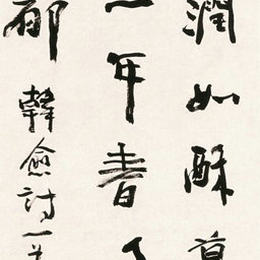 潤如酥草
一年春
都韓愈詩一首